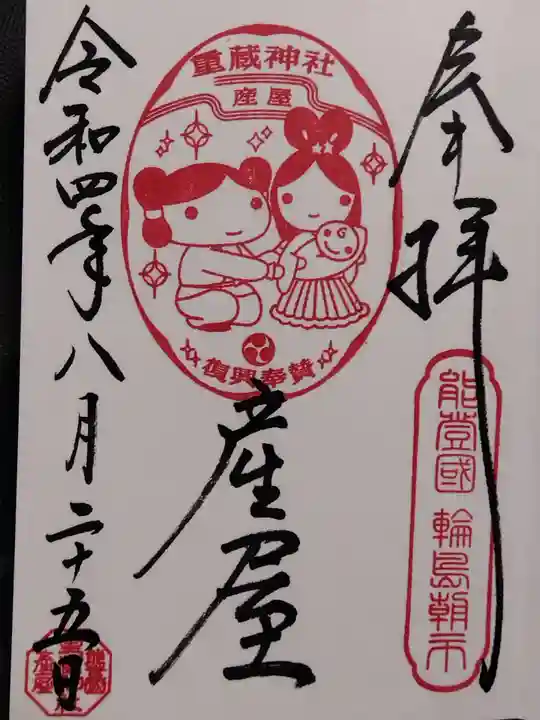 奉拝
能登國 輪島朝市
重蔵神社
産屋
復興奉賛
産屋
令和四年八月二十五日